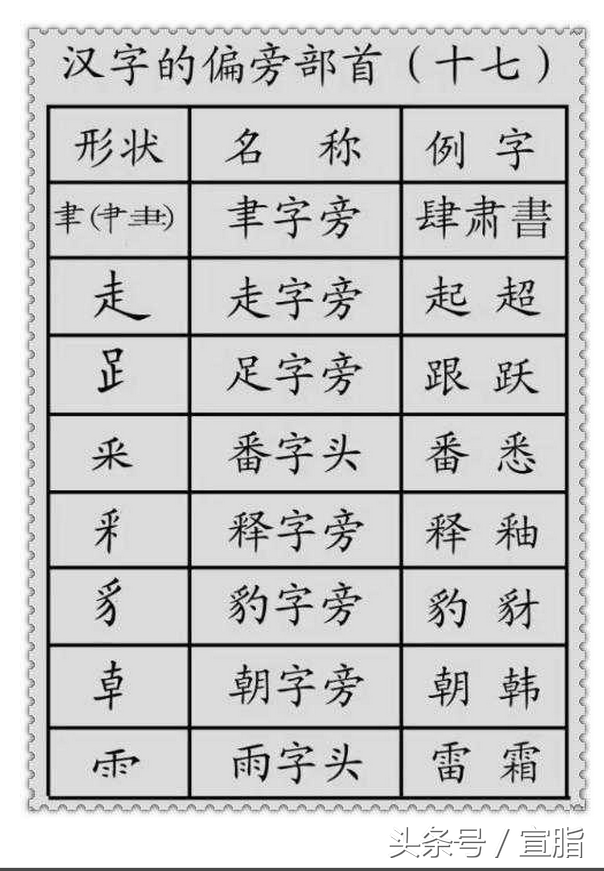 汉字的偏旁部首（十七）
形状 名 称 例 字
聿(肀⺻) 聿字旁 肆肃書
走 走字旁 起 超
⻊ 足字旁 跟 跃
釆 番字头 番 悉
釆 释字旁 释 釉
豸 豹字旁 豹 豺
龺 朝字旁 朝 韩
⻗ 雨字头 雷 霜
头条号 / 宣脂